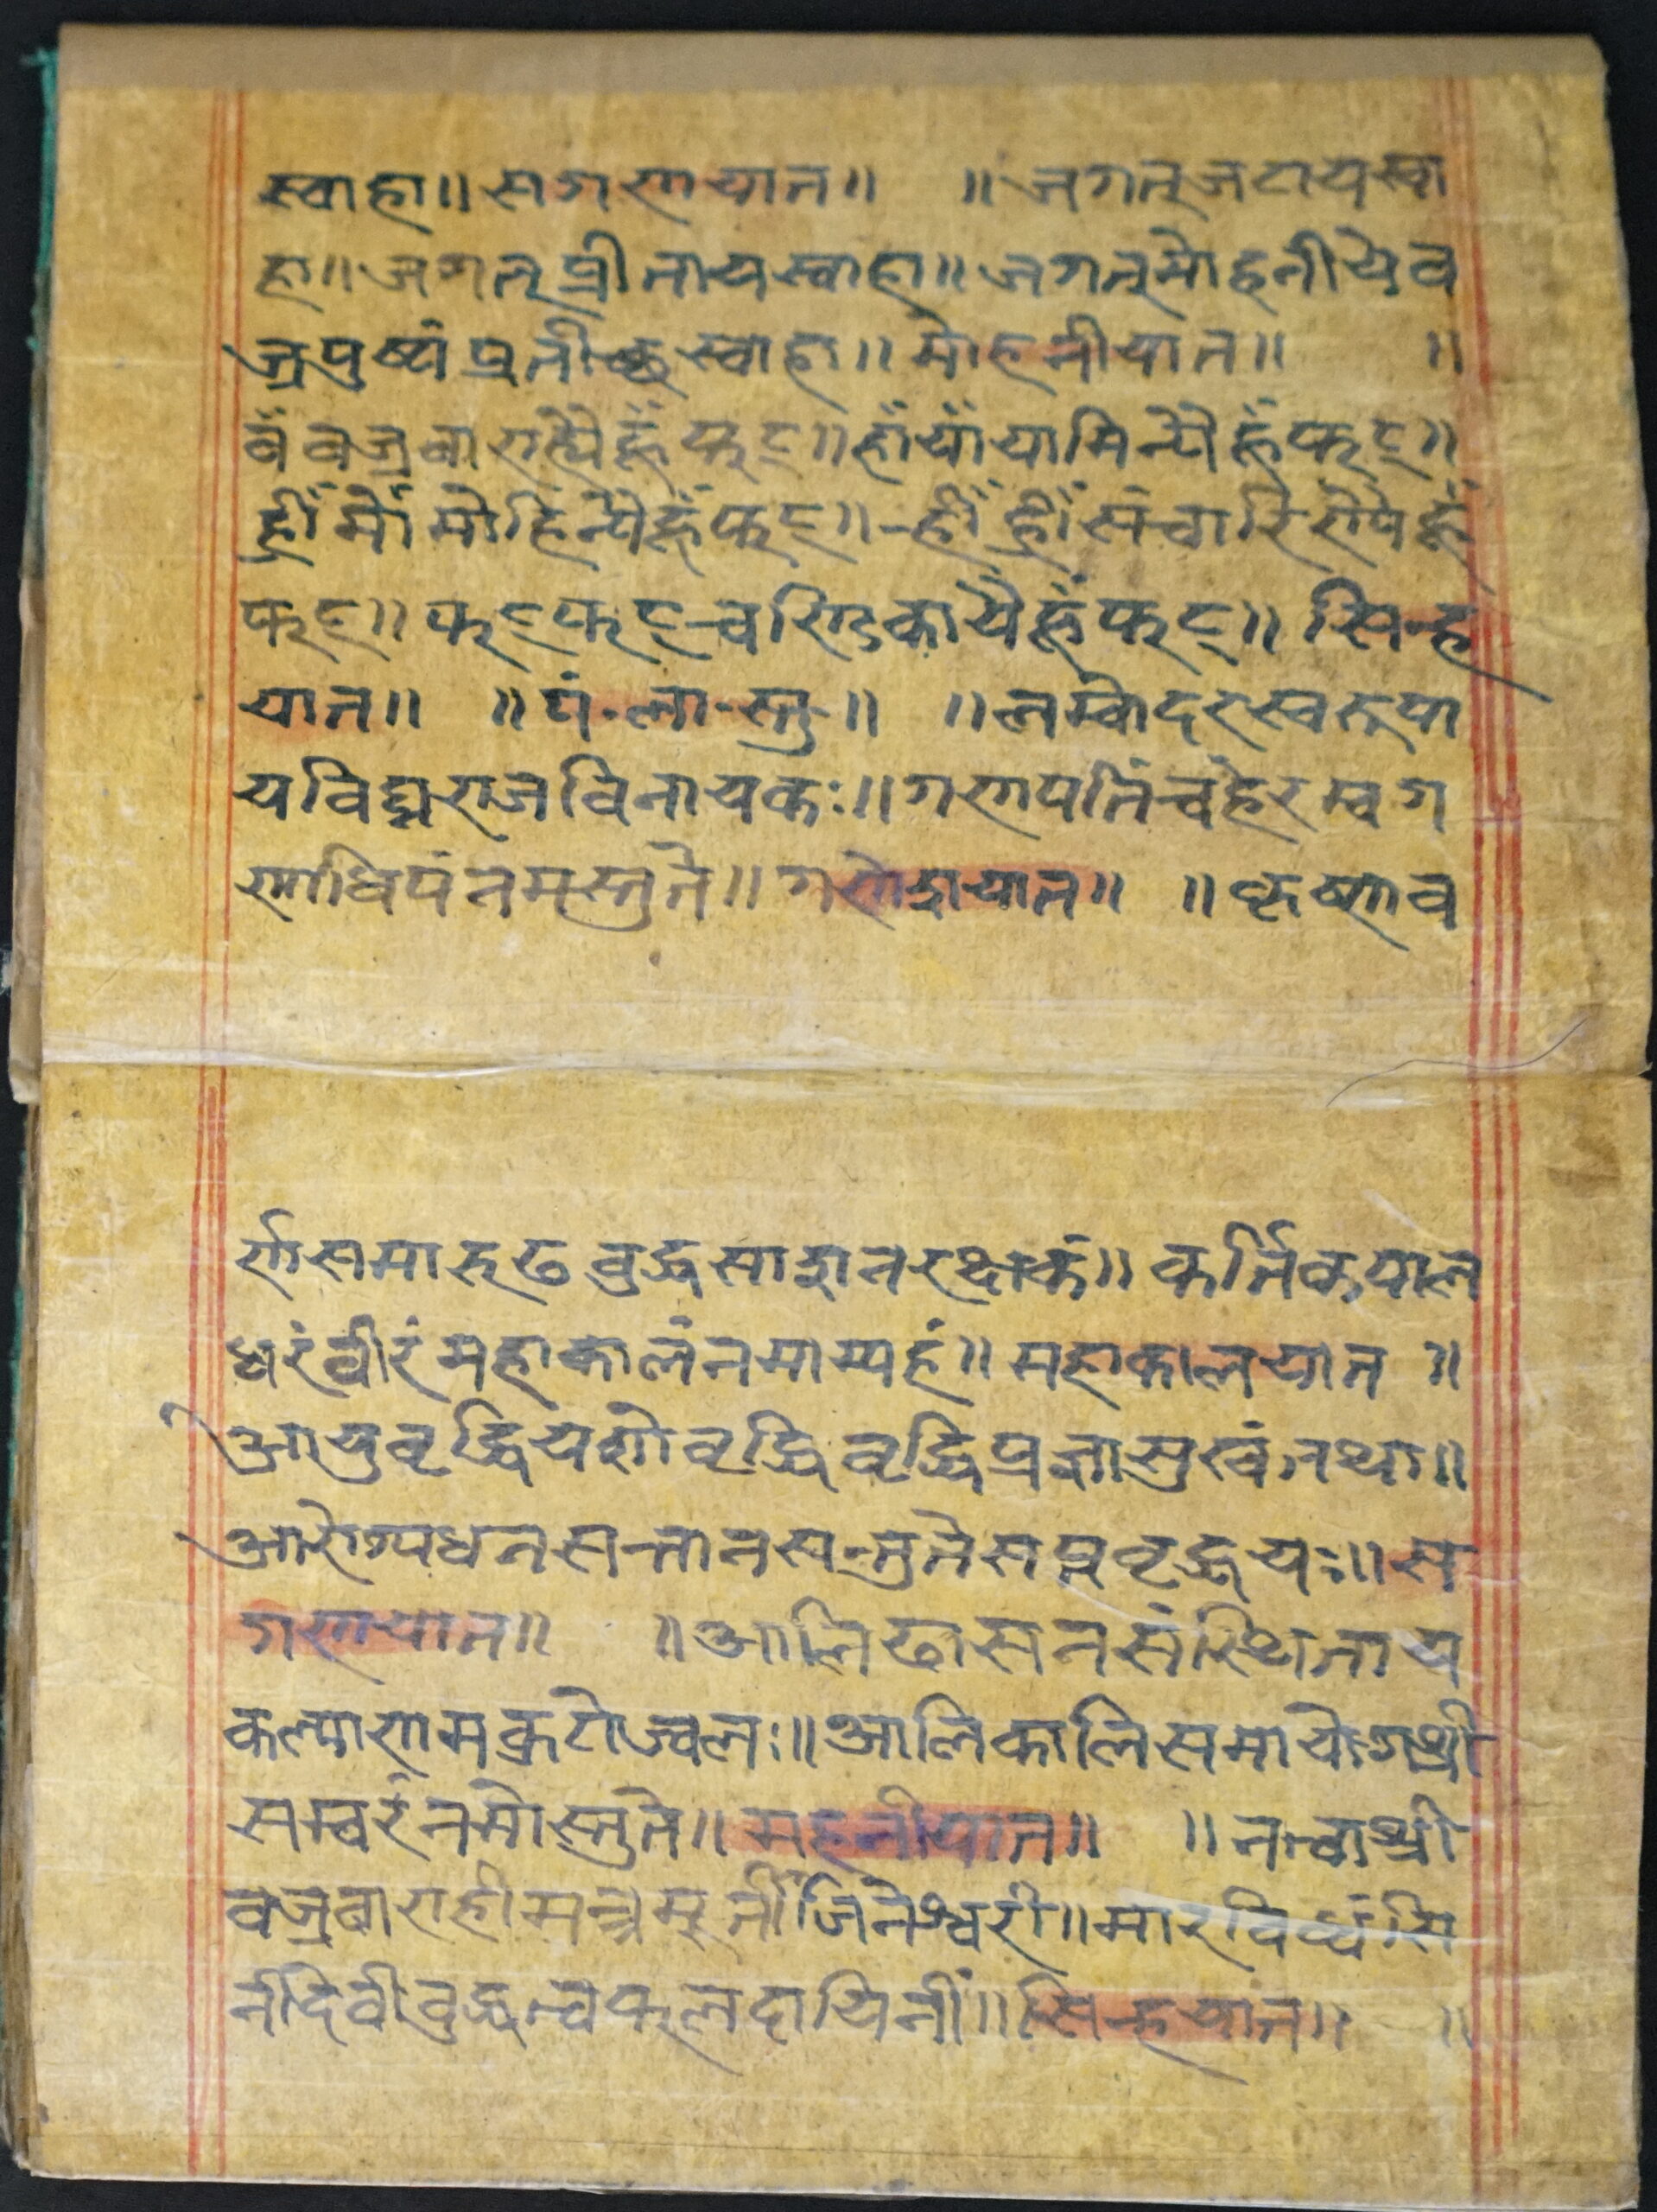 स्वाहा॥ सगणयात॥ ॥ जगत्जटायस्वा
हा॥ जगत्प्रीतायस्वाहा॥ जगत्मोहनीयेव
ज्रपुष्पंप्रतीच्छस्वाहा॥ मोहनीयात॥ ॥
वँवज्रवाराह्यैहूँफट्॥ हाँयाँयामिन्यैहूँफट्॥
ह्रीँमोँमोहिन्यैहूँफट्॥ ह्रीँह्रीँसंचारिण्यैहूँ
फट्॥ फट्फट्चण्डिकायैहूँफट्॥ सिन्ह
यात॥ ॥ पं·ला·स्तु·॥ ॥ लम्बोदरस्वरूपा
यविघ्नराजविनायकः॥ गणपतिंचहेरम्बग
णाधिपंनमस्तुते॥ गणेद्रयात॥ ॥ कृष्णव
र्णसमारूढबुद्धसाशनरक्षकं॥ कर्तिकपाल
धरंवीरंमहाकालंनमाम्यहं॥ महाकालयात ॥
आयुवृद्धियशोवृद्धिवृद्धिप्रज्ञासुखंतथा॥
आरोग्यधनसन्तानसन्तुतेसप्तवृद्धयः॥ स
गणयात॥ ॥ आलिढासनसंस्थिताय
कल्याणमक्रटोज्वलः॥ आलिकालिसमायोगश्री
सम्वरंनमोस्तुते॥ महनीयात॥ ॥ नत्वाश्री
वज्रवाराहीमन्त्रमूर्तीजिनेश्वरी॥ मारविध्वंसि
नीदेवीबुद्धत्वफलदायिनीं॥ सिन्हयात॥ ॥